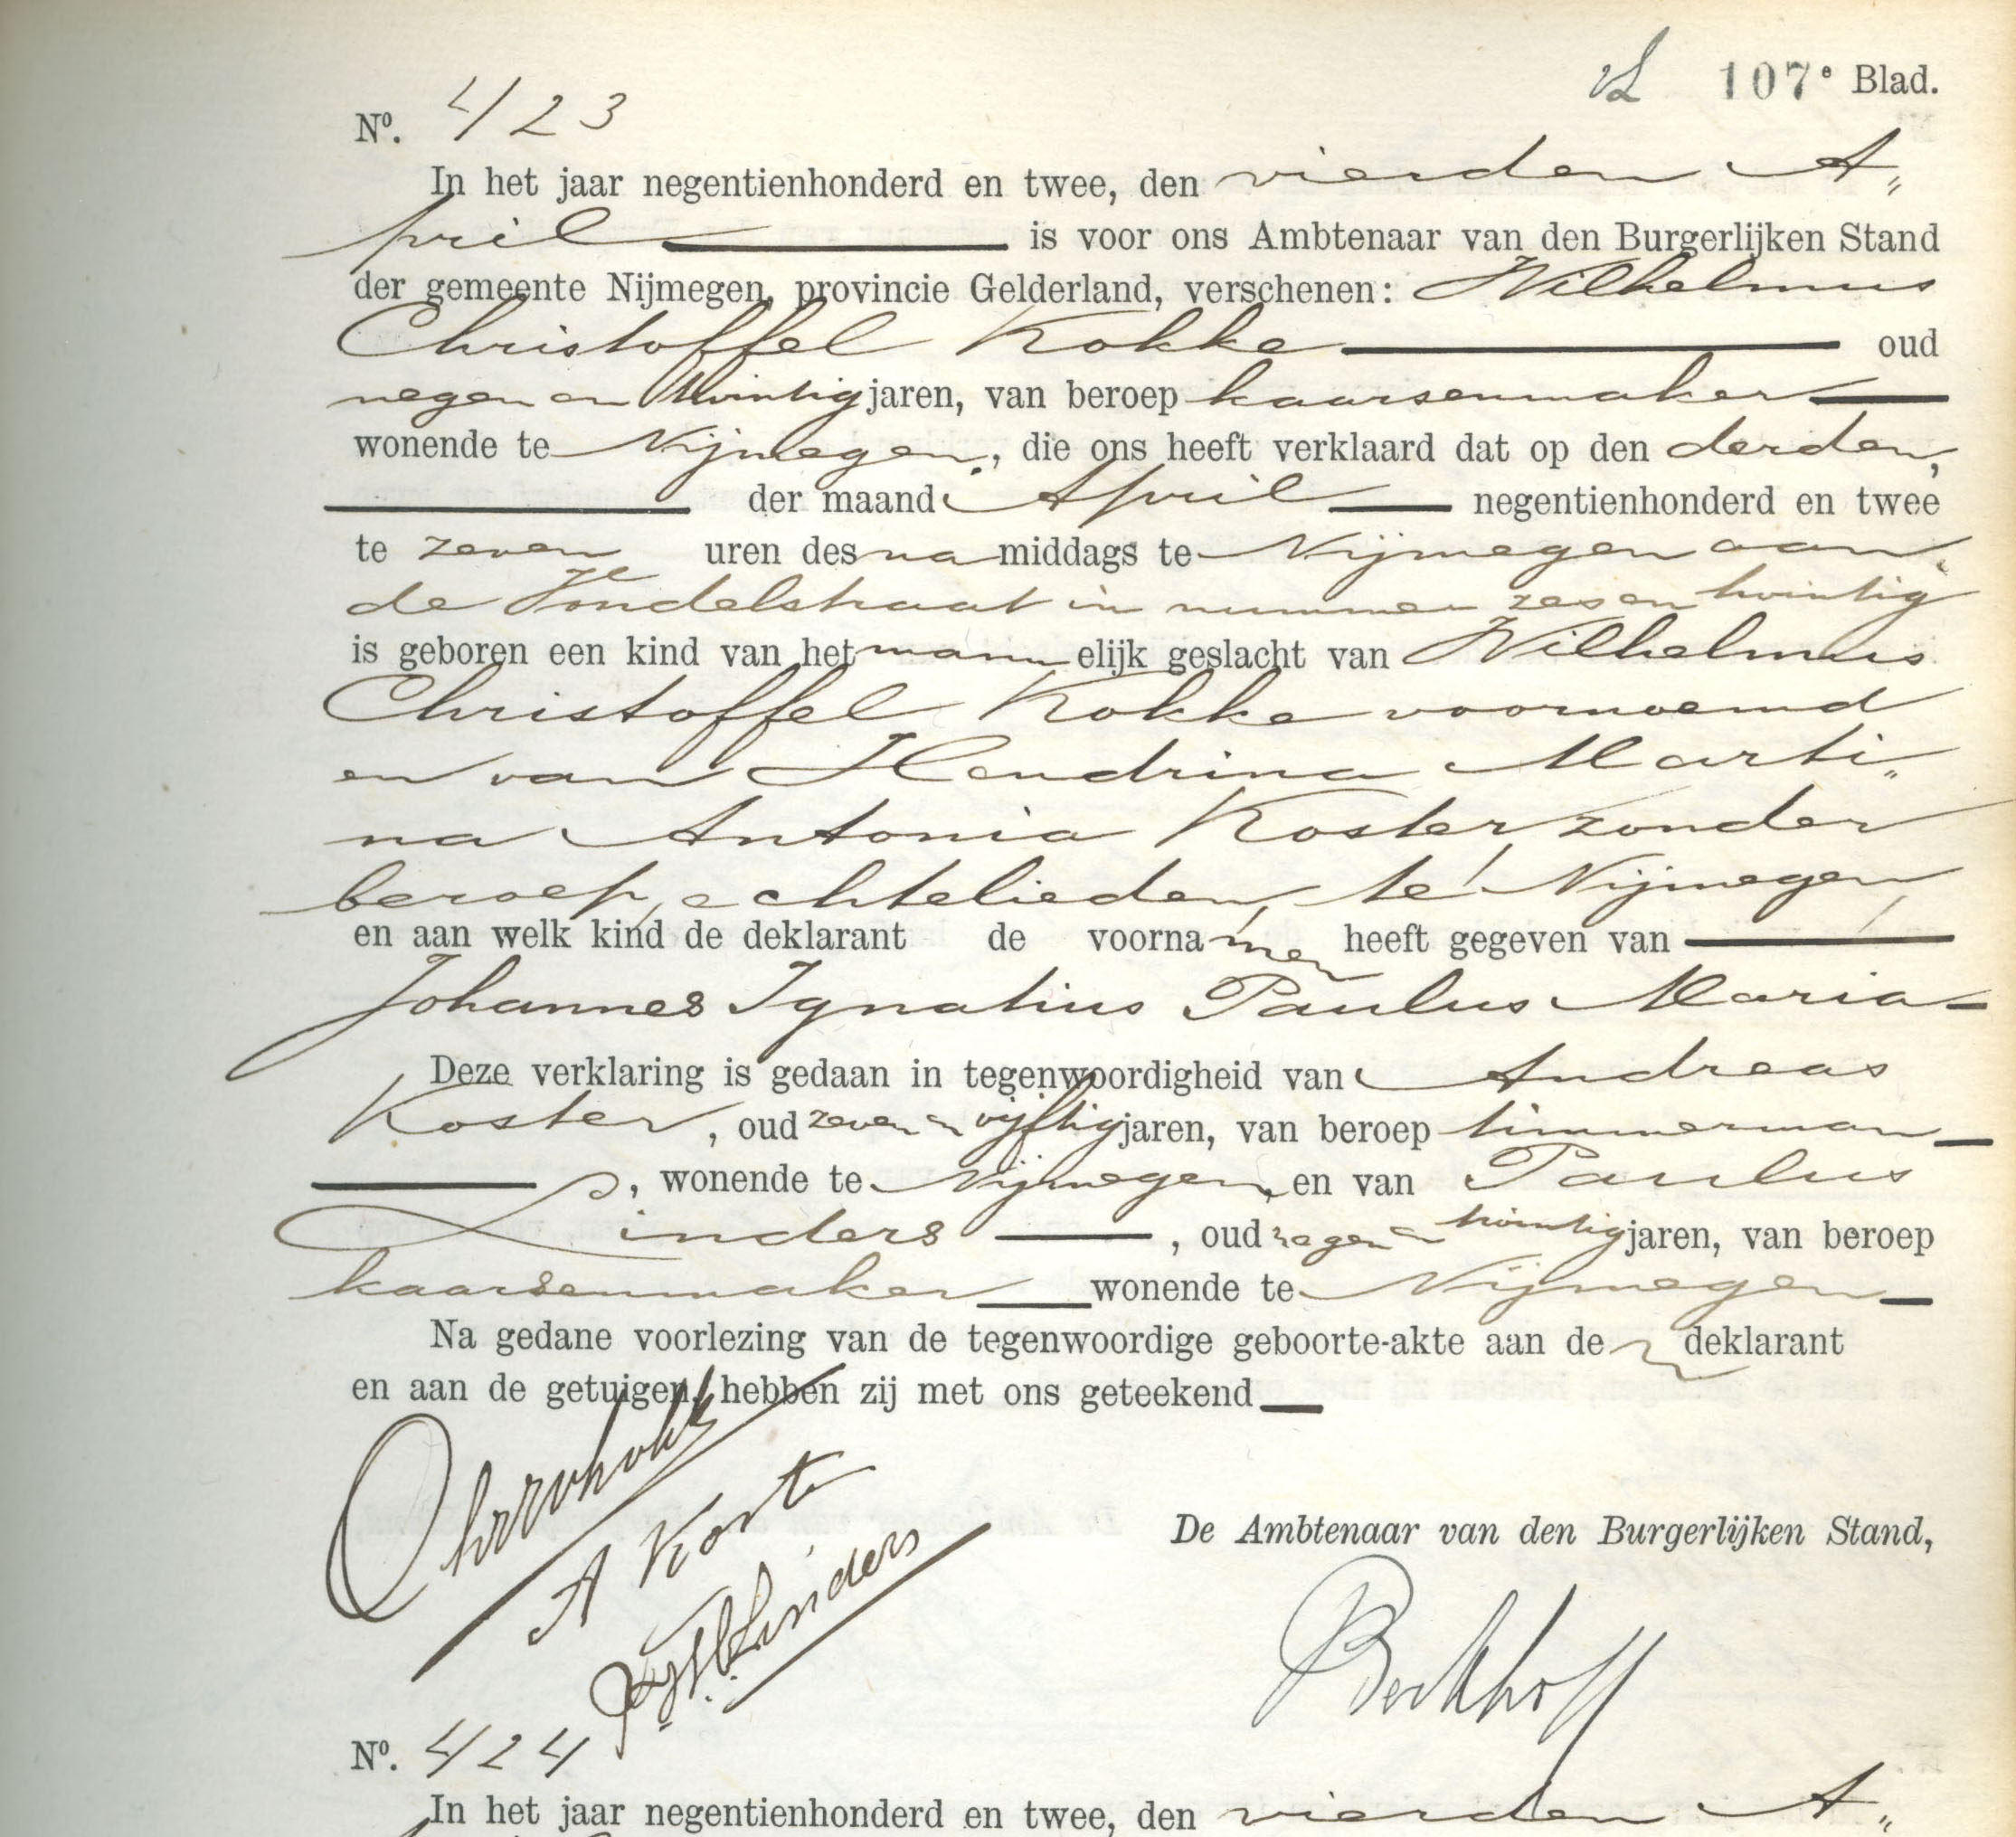 107e Blad.
No. 423
In het jaar negentienhonderd en twee, den vierden A„
pril is voor ons Ambtenaar van den Burgerlijken Stand
der gemeente Nijmegen, provincie Gelderland, verschenen: Wilhelmus
Christoffel Kokke oud
negen en twintig jaren, van beroep kaarsenmaker
wonende te Nijmegen, die ons heeft verklaard dat op den derden,
der maand April negentienhonderd en twee
te zeven uren des namiddags te Nijmegen aan
de Vondelstraat in nummer zes en twintig
is geboren een kind van het mannelijk geslacht van Wilhelmus
Christoffel Kokke voornoemd
en van Hendrina Marti„
na Antonia Koster, zonder
beroep, echtelieden, te Nijmegen,
en aan welk kind de deklarant de voornamen heeft gegeven van
Johannes Ignatius Paulus Maria
Deze verklaring is gedaan in tegenwoordigheid van Andreas
Koster, oud zeven en vijftig jaren, van beroep timmerman
, wonende te Nijmegen, en van Paulus
Linders, oud negen en twintig jaren, van beroep
kaarsenmaker wonende te Nijmegen
Na gedane voorlezing van de tegenwoordige geboorte-akte aan den deklarant
en aan de getuigen, hebben zij met ons geteekend
A Koster
Linders
De Ambtenaar van den Burgerlijken Stand,
Berkhoff
No. 424
In het jaar negentienhonderd en twee, den vierden A„